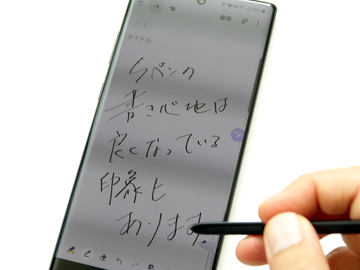 保存
タイトル
Sペンの
書き心地は
良くなっている
印象も
あります。